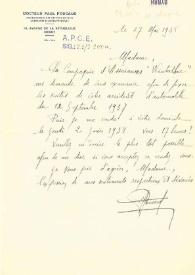 DOCTEUR PAUL FOUCAUD
A.P.C.E.
Le 27 Mai 1938
Madame,
La Compagnie d'Assurances "Winterthur"
me demande de vous examiner afin de fixer
les suites de votre accident d'automobile
du 12 Septembre 1937.
Puis-je me rendre à votre domicile
le jeudi 2 juin 1938 vers 17 heures ?
Veuillez m'écrire le plus tôt possible
afin de me dire si vous acceptez ce rendez-vous.
Je vous prie d'agréer, Madame,
l'expression de mes sentiments respectueux et dévoués